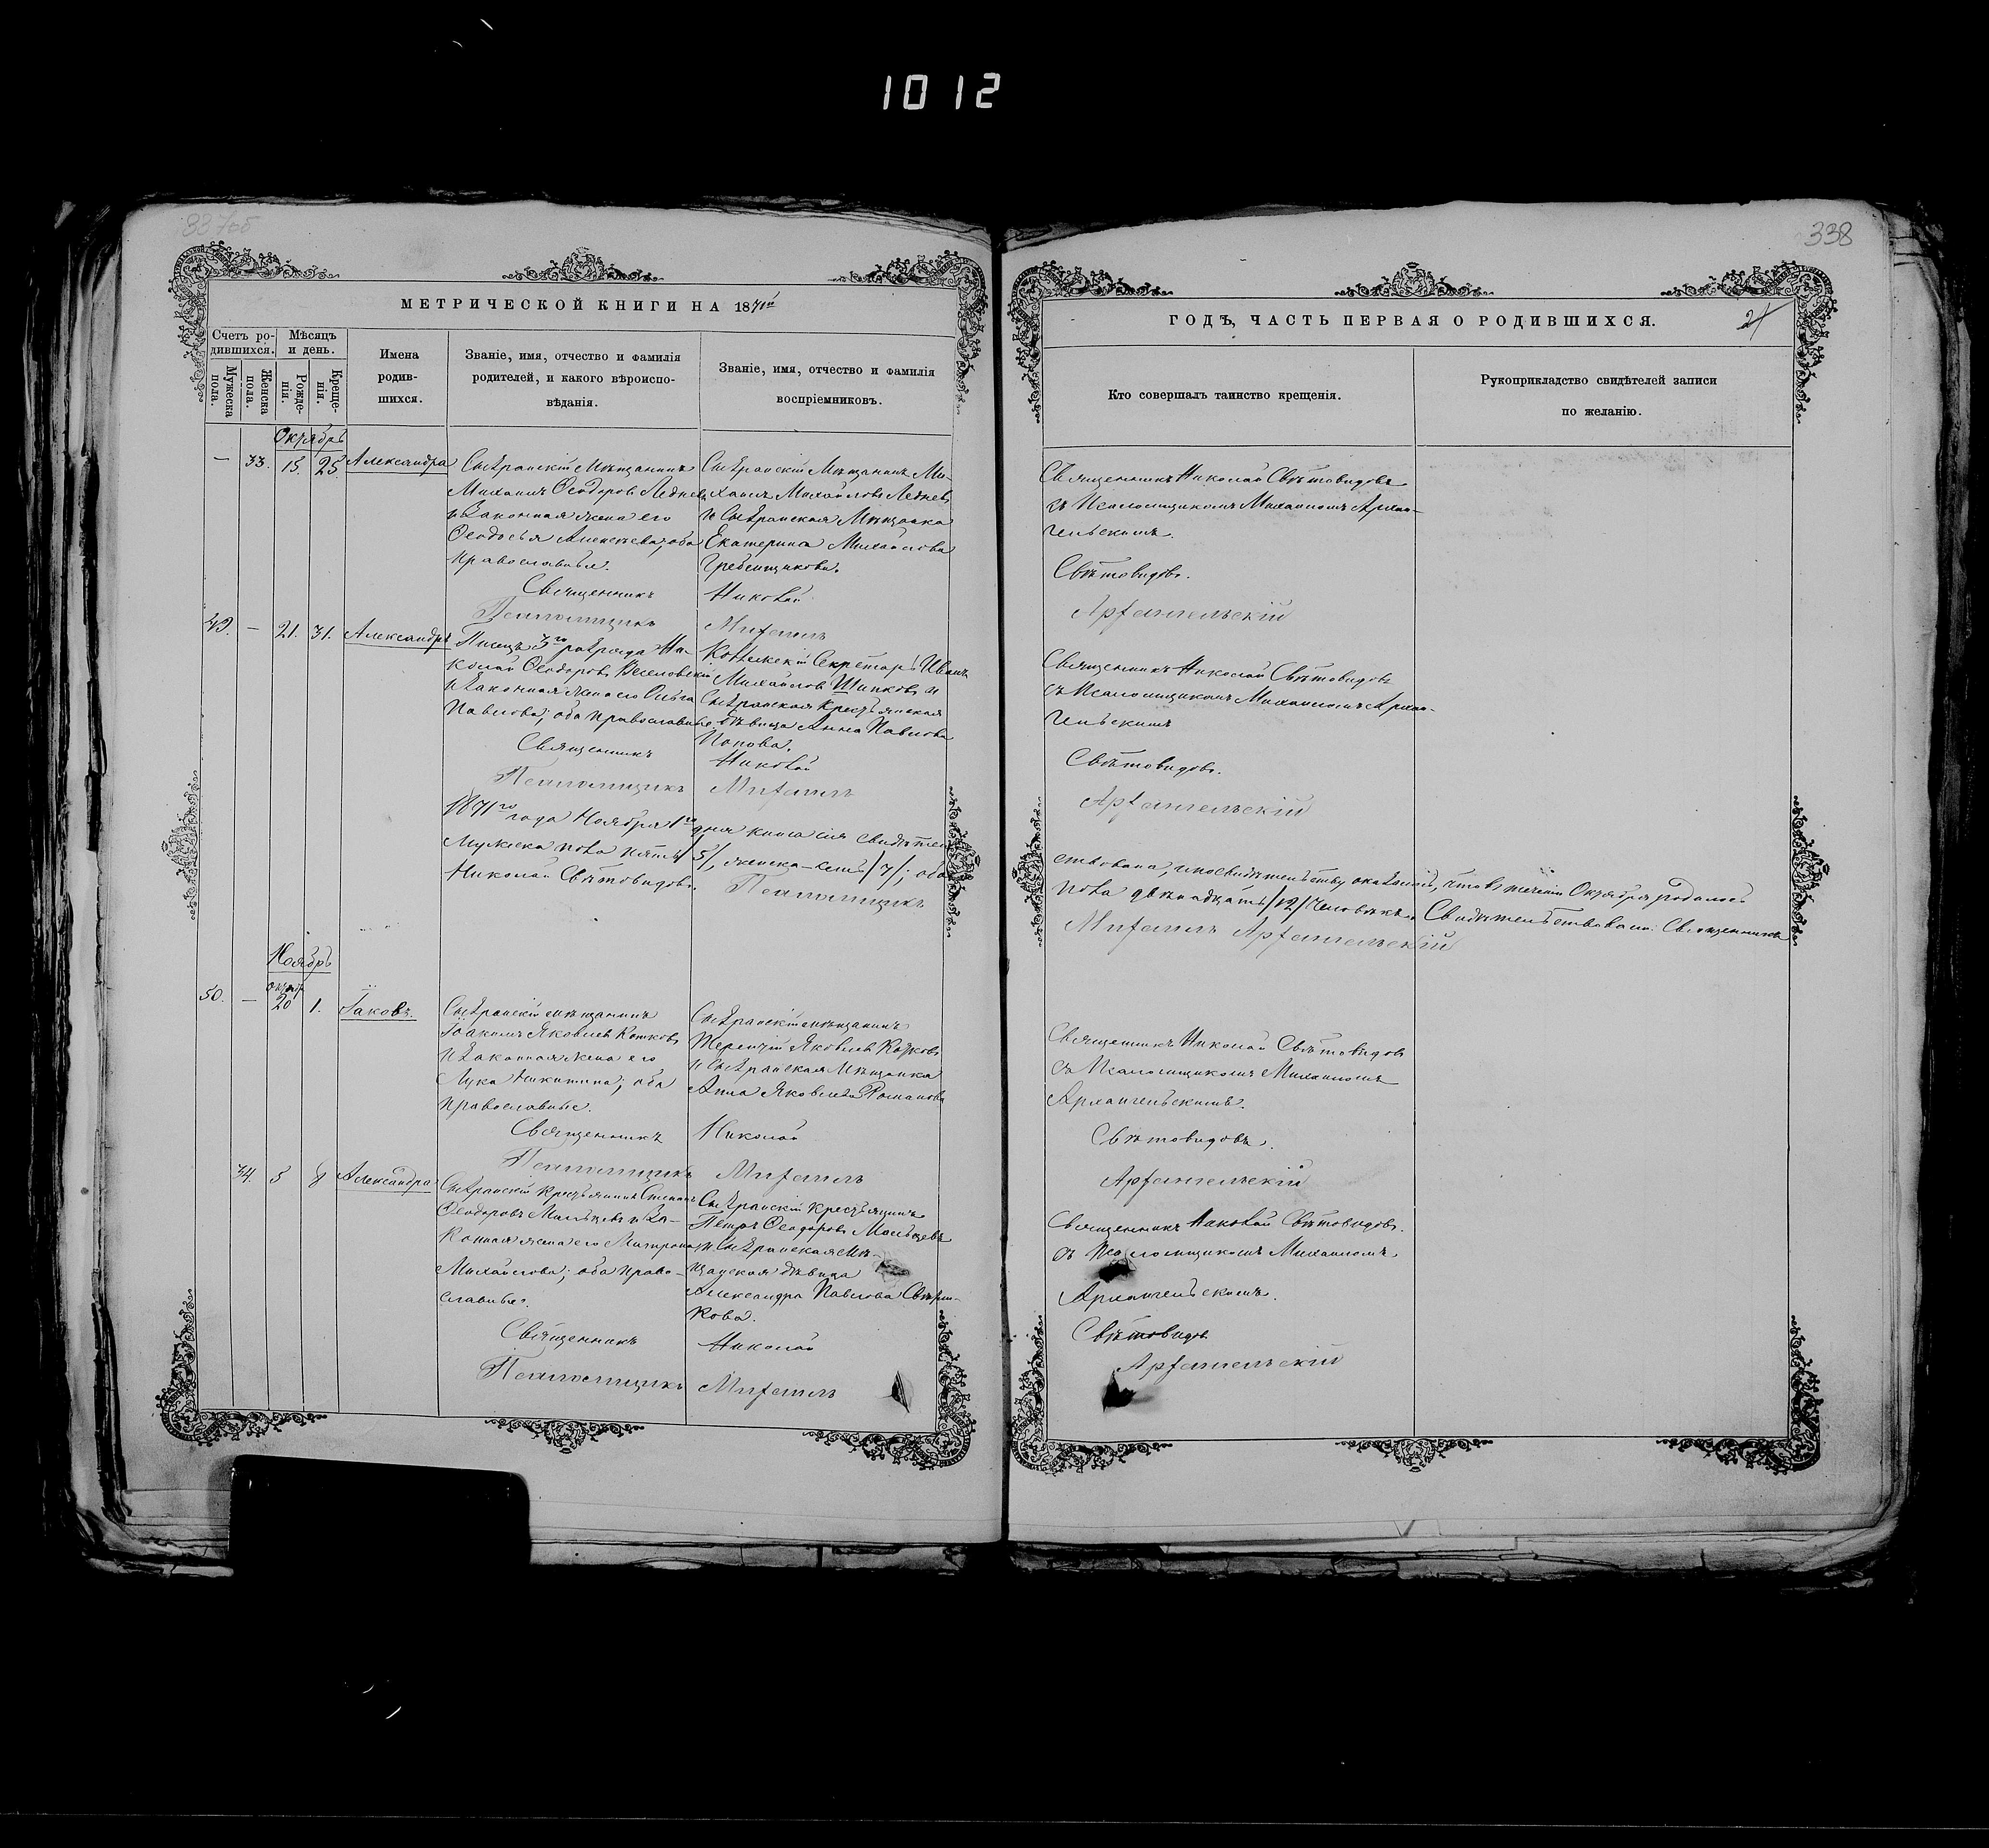 1012
337об
338
МЕТРИЧЕСКОЙ КНИГИ НА 1871й
Счетъ ро-
дившихся.
Мѣсяцъ
и день.
Мужеска
пола.
Женска
пола.
Рожде-
нія.
Креще-
нія.
Имена
родив-
шихся.
Званіе, имя, отчество и фамилія
родителей, и какого вѣроиспо-
вѣданія.
Званіе, имя, отчество и фамилія
воспріемниковъ.
Октябрь
— 33. 15. 25. Александра
Сызранскій Мѣщанинъ
Михаилъ Ѳеодоровъ Леднев
и Законная жена его
Ѳеодосья Алексѣева, оба
православные.
Сызранскій Мѣщанинъ Ми-
хаилъ Михайловъ Леднев
и Сызранская Мѣщанка
Екатерина Михайлова
Гребенщикова.
Священникъ Николай
Псаломщикъ Михаилъ
49. — 21. 31. Александръ
Писецъ 3го разряда Ни-
колай Ѳеодоровъ Веселовскій
и Законная жена его Ольга
Павлова; оба православные.
Коллежскій Секретарь Иванъ
Михайловъ Шипковъ и
Сызранская Крестьянская
дѣвица Анна Павлова
Попова.
Священникъ Николай
Псаломщикъ Михаилъ
1871го года Ноября 1го дня книга сія свидѣтель
Мужеска пола пять /5/, женска – семь /7/; обо
Николай Свѣтовидовъ. Псаломщикъ
Ноябрь
50. — Октяб. 20 1. Іаковъ.
Сызранскій мѣщанинъ
Іоакимъ Яковлевъ Котковъ
и Законная жена его
Никитина; оба
православные.
Сызранскій мѣщанинъ
Терентій Яковлевъ Котковъ
и Сызранская Мѣщанка
Анна Яковлева Романова
Священникъ Николай
Псаломщикъ Михаилъ
34. 5 8 Александра
Сызранскій Крестьянинъ Степанъ
Ѳеодоровъ Мальцевъ и За-
конная жена его Матрона
Михайлова; оба право-
славные.
Сызранскій Крестьянинъ
Петръ Ѳеодоровъ Мальцевъ
и Сызранская Мѣ-
щанская дѣвица
Александра Павлова
кова.
Священникъ Николай
Псаломщикъ Михаилъ
ГОДЪ, ЧАСТЬ ПЕРВАЯ О РОДИВШИХСЯ.
Кто совершалъ таинство крещенія.
Рукоприкладство свидѣтелей записи
по желанію.
Священникъ Николай Свѣтовидовъ
съ Псаломщикомъ Михаиломъ Архан-
гельскимъ.
Свѣтовидовъ.
Архангельскій
Священникъ Николай Свѣтовидовъ
съ Псаломщикомъ Михаиломъ Архан-
гельскимъ
Свѣтовидовъ.
Архангельскій
ствована, и по свидѣтельству оказалось, что въ теченіи Октября родилось
пола двѣнадцать /12/ человѣкъ. Свидѣтельствовали: Священникъ
Михаилъ Архангельскій
Священникъ Николай Свѣтовидовъ
съ Псаломщикомъ Михаиломъ
Архангельскимъ.
Свѣтовидовъ.
Архангельскій
Священникъ Николай Свѣтовидовъ.
съ Псаломщикомъ Михаиломъ
Архангельскимъ.
Свѣтовидовъ
Архангельскій